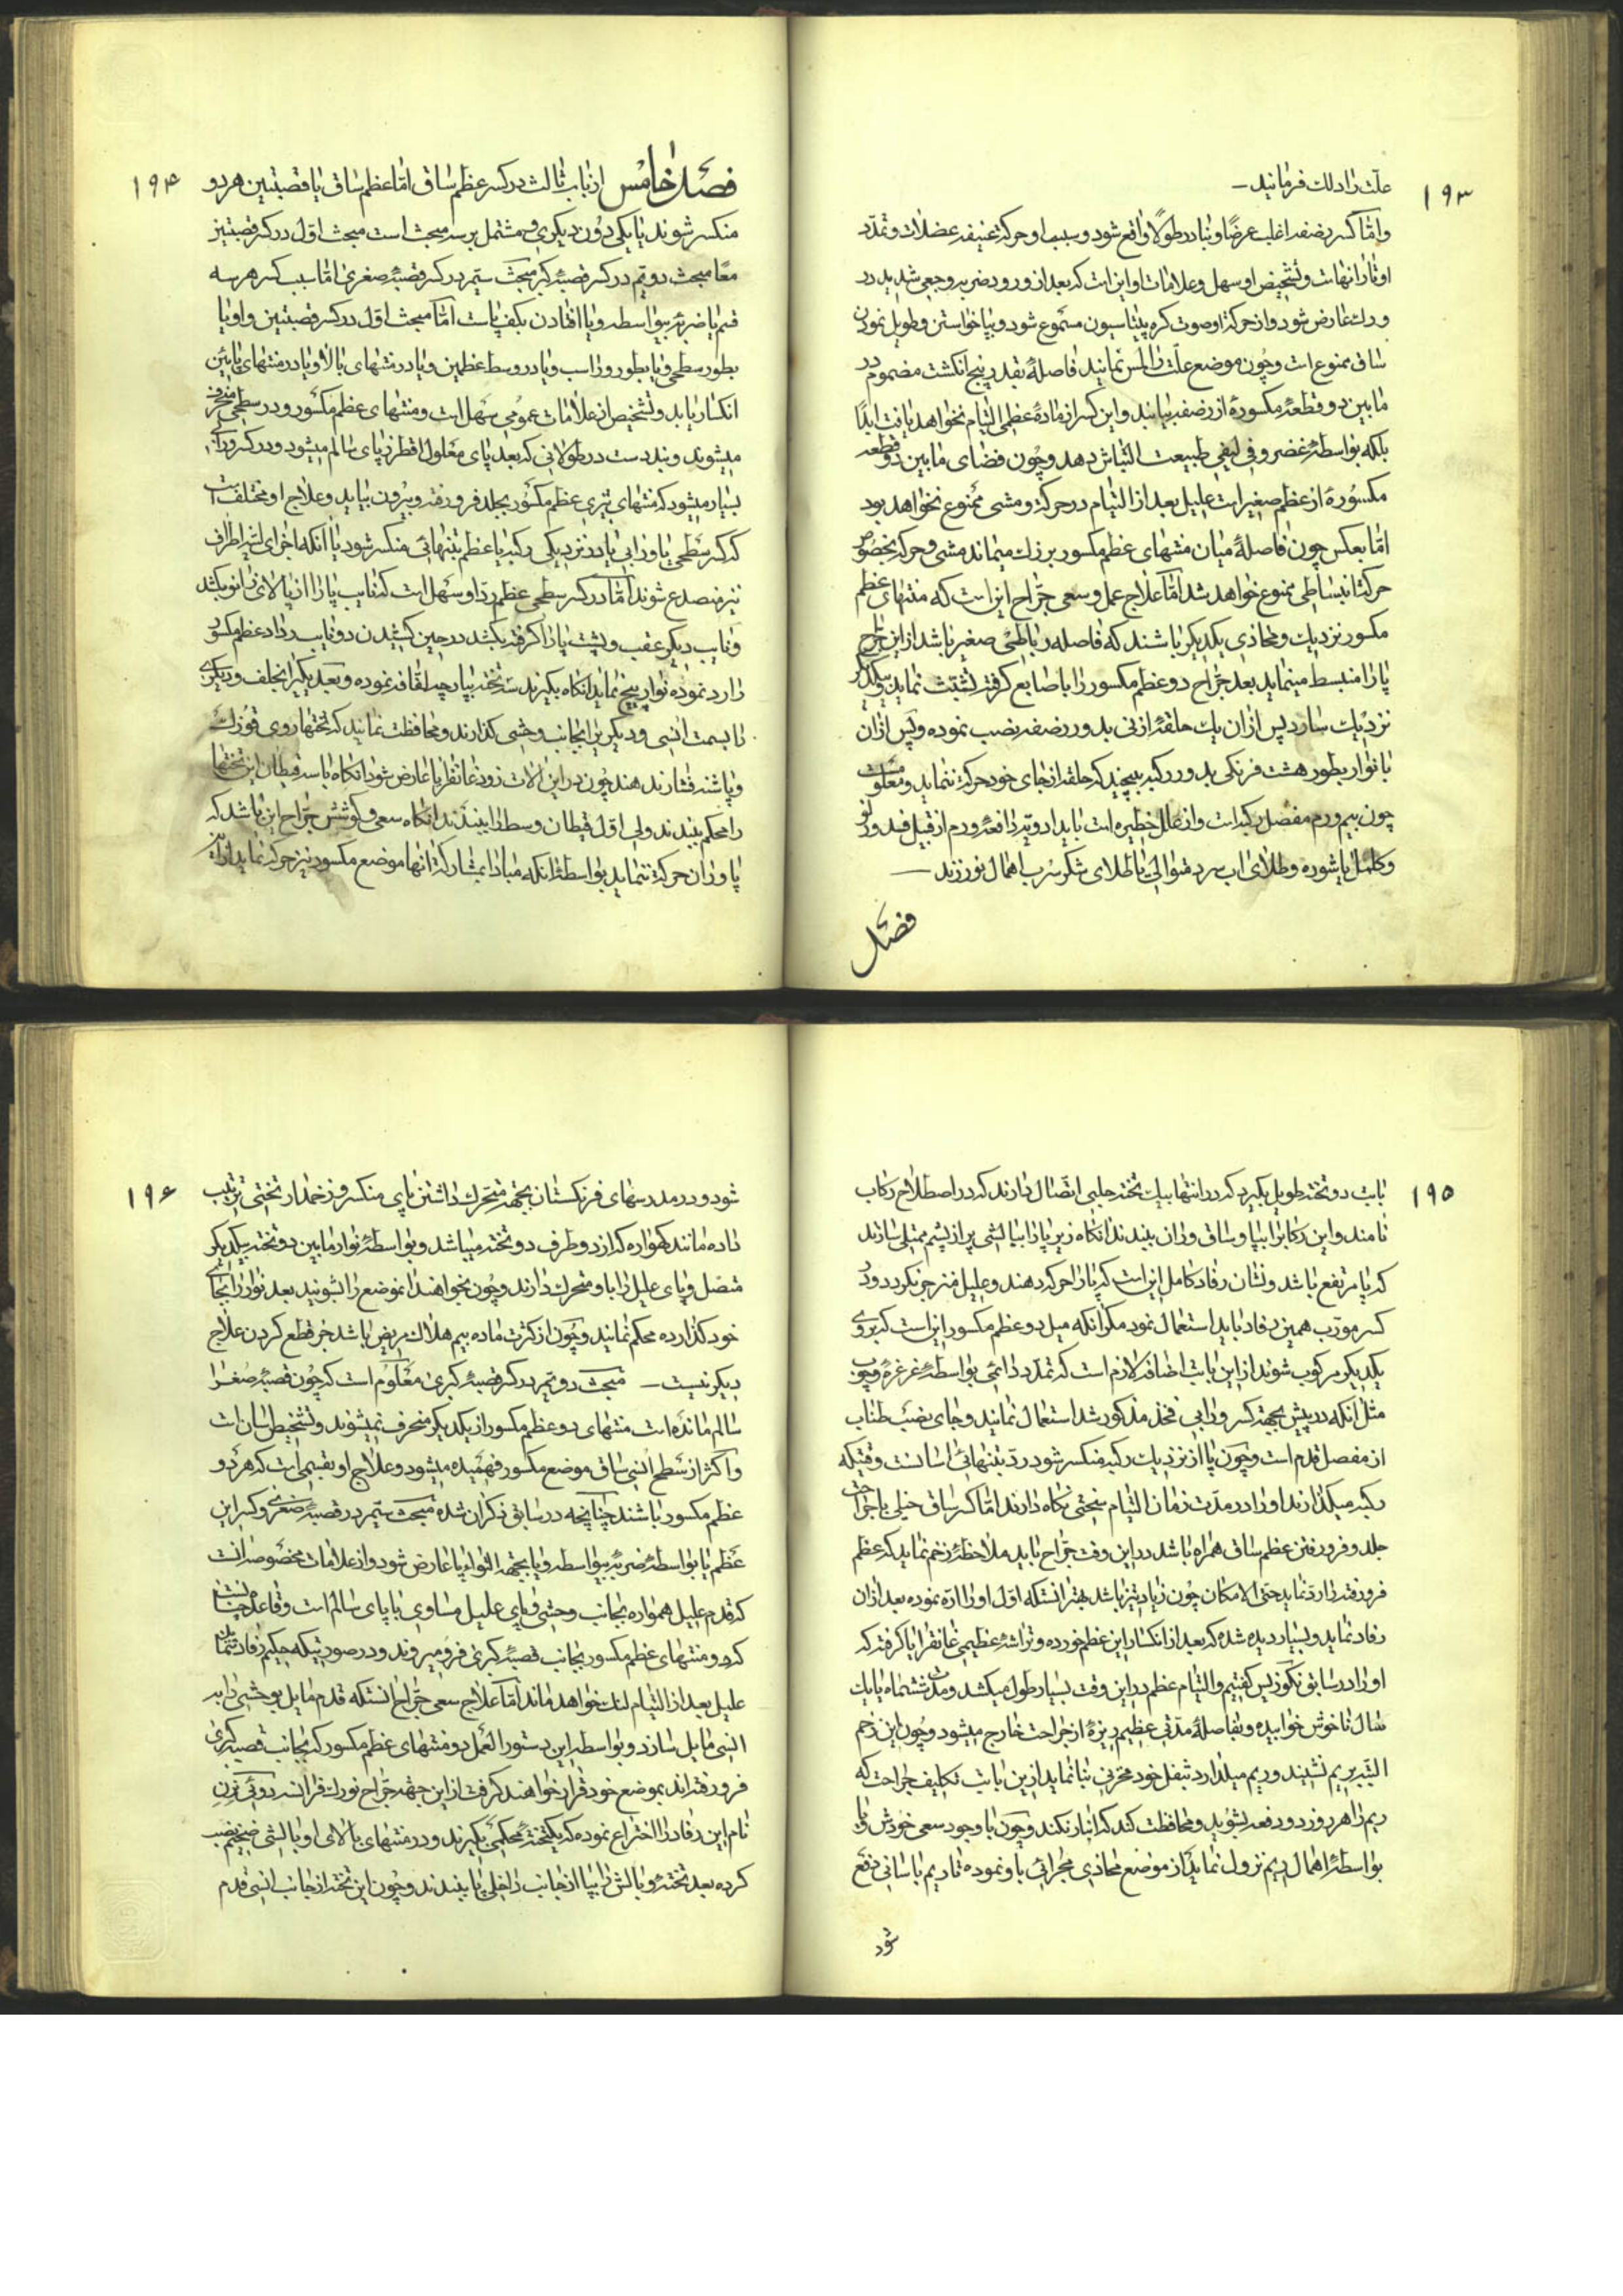 ۱۹۳
علّت را دلك فرمانید
وامّا كسر رضفه اغلب عرضًا و نادر طولًا واقع شود و سبب او حركة عنیفه عضلات و تمدّد
اوتار انهاست و تشخیص او سهل و علامات او این است كه بعد از ورود ضربه وجعی شدید در
ورك عارض شود و از حركة او صوت كره پیتاسیون مسموع شود و بپا خواستن و طویل نمودن
ساق ممنوع است و چون موضع علّت را لمس نمایند فاصلهٔ بقدر پنج انكشت مضموم در
مابین دو قطعهٔ مكسورهٔ از رضفه بیابند و این كسر از مادهٔ عظمی التیام نخواهد یافت ابدًا
بلكه بواسطهٔ غضروفی لیفی طبیعت التیاش دهد و چون فضای مابین دو قطعه
مكسورهٔ از عظم صغیر است علیل بعد از التیام در حركة و مشی ممنوع نخواهد بود
امّا بعكس چون فاصلهٔ میان منتهای عظم مكسور بزرك میماند مشی و حركه بخصوص
حركت انبساطی ممنوع خواهد شد امّا علاج عمل و سعی جرّاح این است كه منتهای عظم
مكسور نزدیك و محاذی یكدیكر باشند كه فاصله رباطی صغیر باشد از این جراح
پا را منبسط مینماید بعد جرّاح دو عظم مكسور را با اصابع كرفته تشبّث نماید و بیكدیكر
نزدیك سازد پس از ان یك حلقهٔ از نی بدور رضفه نصب نموده و پس از ان
با نوار بطور هشت فرنكی بدور ركبه بپیچند كه حلقه از جای خود حركة ننماید و معلومست
چون بیم ورم مفصل ركبه است و از علل خطیره است باید ادویه رافعهٔ ورم از قبیل فصد و زلو
و كلمل با شوره و طلای اب سرد متوالی یا طلای شكر سرب اهمال نورزند
فصل
۱۹۴
فصل خامس از باب ثالث در كسر عظم ساق امّا عظم ساق یا قصبتین هر دو
منكسر شوند یا یكی دون دیكری و مشتمل بر سه مبحث است مبحث اوّل در كسر قصبتین
معًا مبحث دویم در كسر قصبهٔ كبری مبحث سیّم در كسر قصبهٔ صغری امّا سبب كسر هر سه
قسم یا ضربهٔ بیواسطه و یا افتادن بكف پاست امّا مبحث اوّل در كسر قصبتین و او یا
بطور سطحی و یا بطور ورا سب و یا در وسط عظمین و یا در منتهای بالا و یا در منتهای پایئن
انكسار یابد و تشخیص از علامات عمومی سهل است و منتهای عظم مكسور در سطحی منحرف
میشوند و بندرست در طولانی كه بعد پای معلول اقطر از پای سالم میشود و در كسر ورابی
بسیار میشود كه منتهای تیزی عظم مكسور بجلد فرو رفته و بیرون بیاید و علاج او مختلف است
كه كسر سطحی یا ورابی یا در نزدیكی ركبه یا عظم بتنهائی منكسر شود یا انكه اجزای لیّنه اطراف
نیز منصدع شوند امّا در كسر سطحی عظم ردّ او سهل است كه نایب پا را از بالای زانو بكشد
و نایب دیكر عقب و پشت پا را كرفته بكشد در حین كشیدن دو نایب ردّاد عظم مكسور
را رد نموده نوار پیچ نماید انكاه بكیرند سه تخته بپارچه لقافه نموده و بعد یكیرا بخلف و دیكریرا
را بسمت انسی و دیكریرا بجانب وحشی كذارند و محافظت نمایند كه تختها روی قوزك
و پاشنه فشار ندهند چون در این الات زود غانقرایا عارض شود انكاه با سه قیطان این تختها
را محكم ببندند ولی اوّل قیطان وسط را ببندند انكاه سعی و كوشش جرّاح این باشد كه
پا و ران حركة ننماید بواسطهٔ انكه مبادا بمشاركة انها موضع مكسور نیز حركة نماید از این
۱۹۵
بابت دو تخته طویل بكیرد كه در انتها بیك تخته جلبی اتصال دارند كه در اصطلاح ركاب
نامند و این ركابرا بپا و ساق و ران ببندند انكاه زیر پا را ببالشی پر از پشم ممتلی سازند
كه پا مرتفع باشد و نشان رفاد كامل این است كه پا را حركه دهند و علیل منزجر نكردد و در
كسر مورّب همین رفاد باید استعمال نمود مكر انكه میل دو عظم مكسور این است كه بروی
یكدیكر مركوب شوند از این بابت اضافه لازم است كه تمدّد دائمی بواسطهٔ غرغرهٔ و چوب
مثل انكه در پیش بجهة كسر ورابی فخذ مذكور شد استعمال نمایند و جای نصب طناب
از مفصل قدم است و چون پا از نزدیك ركبه منكسر شود ردّ بتنهائی اسانست وقتیكه
ركبه میكذارند او را در مدّت زمان التیام بسختی نكاه دارند امّا كسر ساق خیلی با جراحت
جلد و فرو رفتن عظم ساق همراه باشد در این وقت جرّاح باید ملاحظهٔ زخم نماید كه عظم
فرو رفته را ردّ نماید حتی الامكان چون زیاد تیز باشد بهتر انستكه اوّل او را ارّه نموده بعد از ان
رفاد نماید و بسیار دیده شده كه بعد از انكسار این عظم خورده و تراشهٔ عظیمی غانقرایا كرفته كه
او را در سابق نكوزیس كفتیم و التیام عظم در این وقت بسیار طول میكشد و مدّت ششماه یا یك
سال ناخوش خوابیده و بفاصلهٔ مدّتی عظیم ریزهٔ از جراحت خارج میشود و چون این زخم
التیّه بریم نشیند و ریم میلدارد بثقل خود مخزنی بنا نماید از این بابت تكلیف جراحت كه
ریم را هر روز دو دفعه بشوید و محافظت كند كه انبار نكند و چون با وجود سعی خودش و یا
بواسطهٔ اهمال ریم نزول نماید از موضع محاذی مجرائی باو نموده تا ریم باسانی دفع
شود
۱۹۶
شود و در مدرسهای فرنكستان بجهة متحرك داشتن پای منكسر و زخمدار تختی ترتیب
داده مانند كهواره كه از دو طرف دو تخته میباشد و بواسطهٔ نوار مابین دو تخته بیكدیكر
متصل و پای علیل را باو متحرك دارند و چون بخواهند انموضع را بشویند بعد نوار را بجای
خود كذارده محكم نمایند و چون از كثرت ماده بیم هلاك مریض باشد جز قطع كردن علاج
دیكر نیست ـ مبحث دویّم در كسر قصبهٔ كبری معلوم است كه چون قصبهٔ صغرا
سالم مانده است منتهای دو عظم مكسور از یكدیكر منحرف نمیشوند و تشخیص اسان است
و اكثر از سطح انسی ساق موضع مكسور فهمیده میشود و علاج او بقسمی است كه هر دو
عظم مكسور باشند چنانچه در سابق ذكر ان شده مبحث سیّم در قصبهٔ صغری و كسر این
عظم یا بواسطهٔ ضربهٔ بیواسطه و یا بجهة التواء پا عارض شود و از علامات مخصوصه انست
كه قدم علیل همواره بجانب وحشی و پای علیل مساوی با پای سالم است و قاعده چنانست
كه دو منتهای عظم مكسور بجانب قصبهٔ كبری فرو میروند و در صورتیكه حكیم رفاد ننماید
علیل بعد از التیام لنك خواهد ماند امّا علاج سعی جرّاح انستكه قدم مایل بوحشی را به
انسی مایل سازد و بواسطه این دستور العمل دو منتهای عظم مكسور كه بجانب قصبه كبری
فرو رفته اند بموضع خود قرار خواهند كرفت از این جهة جرّاح بزرك فرانسه دوپی ترن
نام این رفاد را اختراع نموده كه یكتختهٔ محكمی بكیرند و در منتهای بالای او بالشی ضخیم نصب
كرده بعد تخته و بالش را بپا از جانب داخلی پا ببندند و چون این تخته از جانب انسی قدم